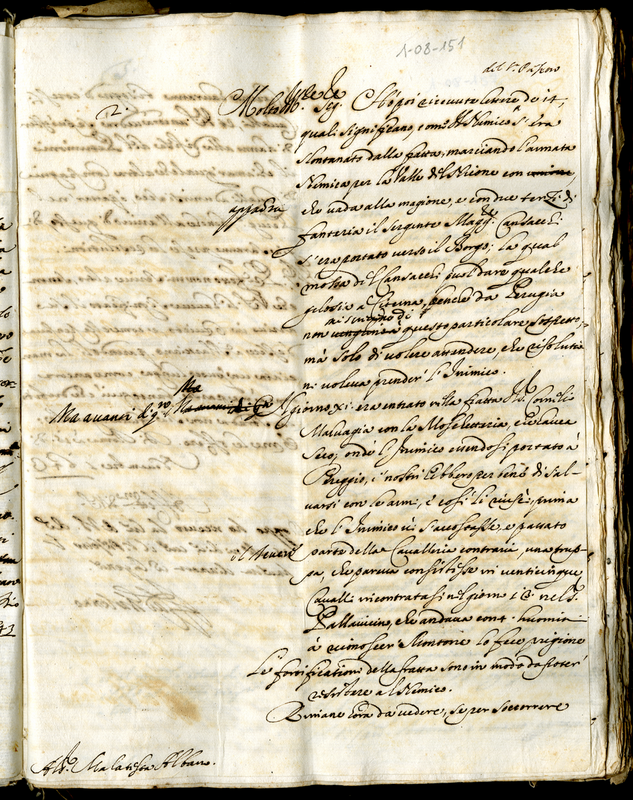 1-08-151
del S.r Pastore
2.
Molto Ill.re Sig.r Ebbi poi ricevute lettere de 14,
quali significano, come il Nemico s'era
slontanato dalla fratta, marciando l'armata
Nemica per la Valle del Nicone con
che vada alla magione, e con due terzi di
appadua
fantaria il Sergente Magg.r Cansacchi
s'era portato verso il Borgo; la qual
mossa del Cansacchi può dare qualche
gelosia a, benchè da Perugia
mi scrivino di
non questo particolare sospetto,
mà solo di volere attendere, che risolutio-
ne voleva prender l'Inimico.
Ma
Ma avanti il giorno XI era entrato nella fratta il S.r Cornelio
Malvagia con la Moschetteria, e
seco; onde l'Inimico essendosi portato à
Peruggio, i nostri hebbero per bene di sal-
varsi con le armi, e così li riuscì, prima
che l'Inimico vi s'accostasse, e passato
il Tevere
parte della Cavalleria contraria, una trup-
pa, che pareva consistesse in venticinque
Cavalli rincontratasi nel giorno 13 nel S.r
Pallavicino, che andava con 4 huomini
à riconoscer Montone lo fece prigione
Le fortificationi della fratta sono in modo da poter
resistere al Nemico.
Rimane hora da vedere, se per soccorrere
All. Malatesta Albano.